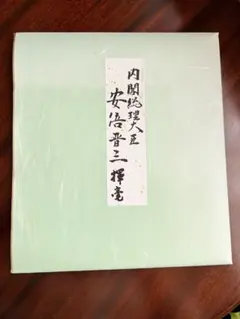 内閣総理大臣
安倍晋三 揮毫